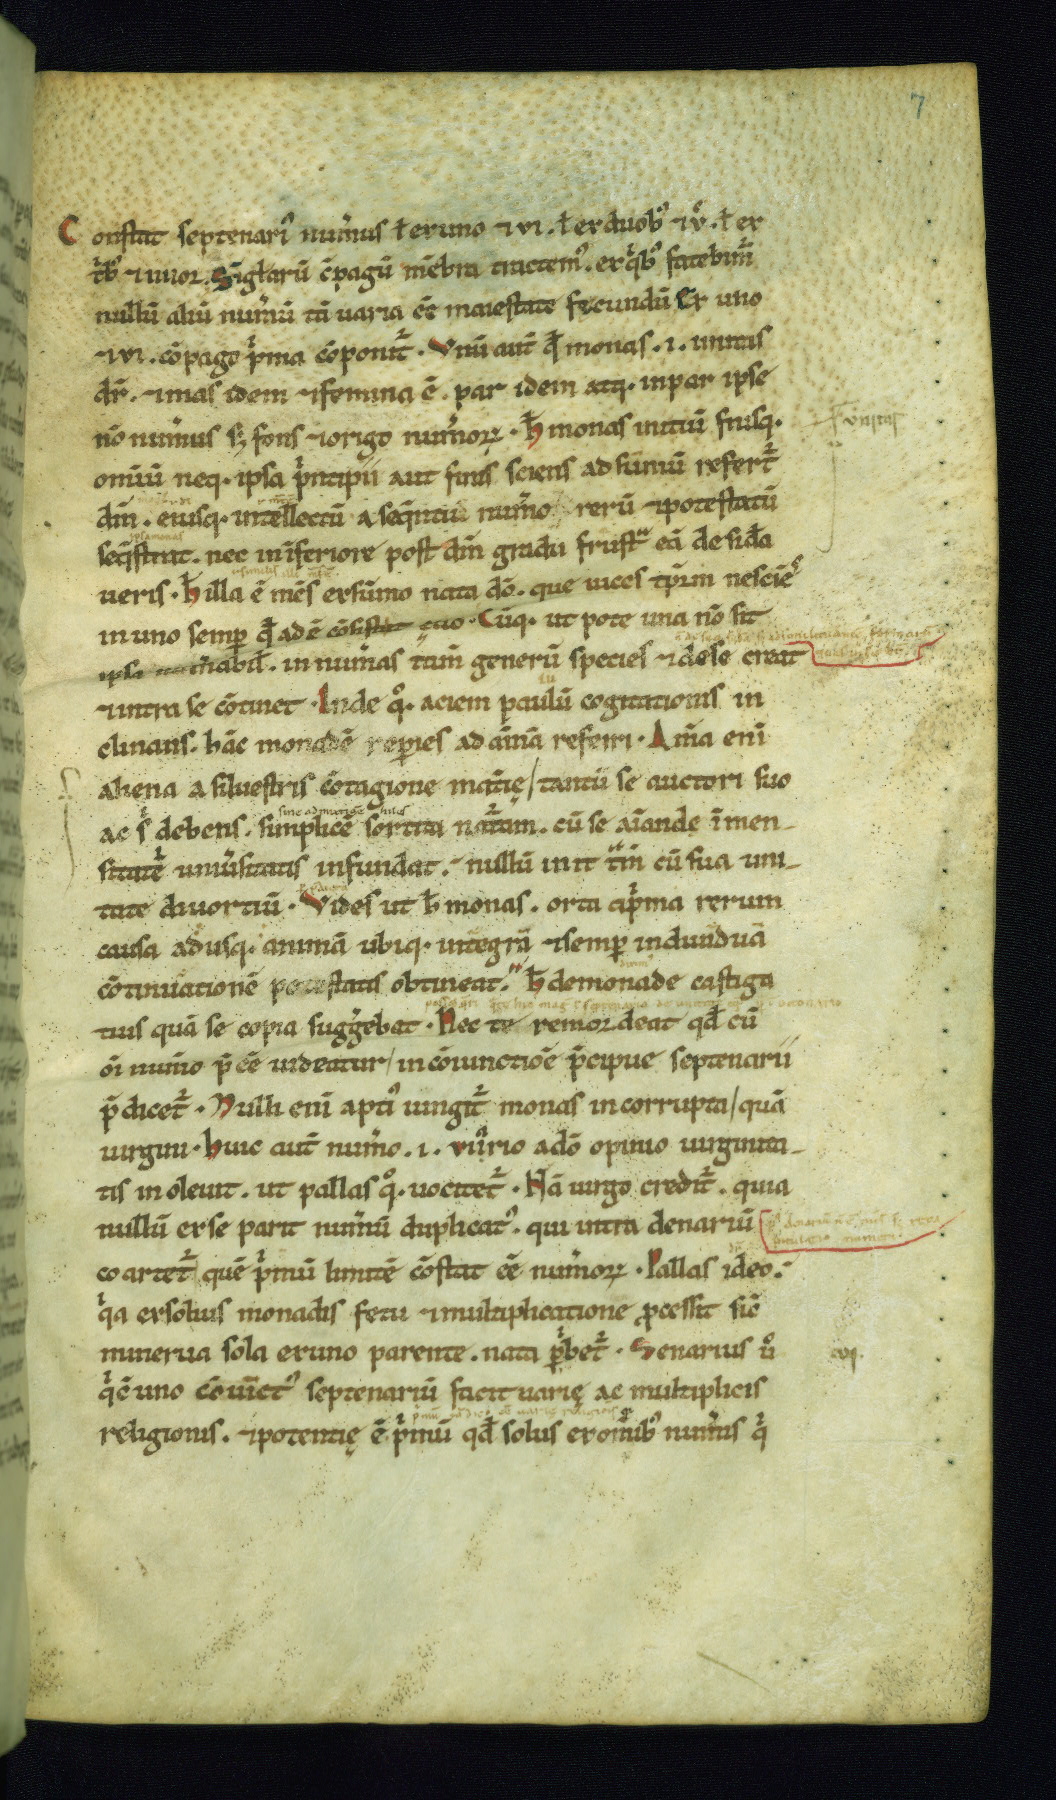 7
Constat septenari᷒ num̄us ł ex uno ⁊ vi. ł ex duob᷒ ⁊ v. ł ex
trib᷒ ⁊ iiiior. Singlarū c̄pagū mēbra tractem᷒. ex qib᷒ fatebim̄
nullū aliū num̄ū tā uaria eē maiestate fecundū Ex uno
⁊ vi. cōpago pͥma cōponit᷑. Vnū aut̄ qđ monas .i. unitas
dr̄. ⁊ mas idem ⁊ femina ē. par idem atq. inpar ipse
nō num̄us sꝫ fons ⁊ origo num̄oꝝ. h̄ monas initiū finisq.
omīū neq. ipsa pͥncipii aut finis sciens ad sūmū refert᷑
dm̄. eiusq. intellectū a seqntiū num̄o rerū ⁊ potestatū
seqstrat. nec in īferiore post dm̄ gradu frustᵃ eā desida
ueris. h̄ illa ē mēs ex sūmo nata dō. que uices tp̄rm nesciēs
in uno semp̱ qđ adē cōsistit euo. Cūq. ut pote una nō sit
ipsa num̄abil̄. in num̄as tam̄ generū species ⁊ de se creat
⁊ intra se cōtinet. Inde qͦ. aciem paulū cogitationis in
clinans. hāc monadē rep̱ies ad aīmā referri. Aīma enī
aliena a siluestris cōtagione matīę/ tantū se auctori suo
ac sͥ debens. simplicē sortita nat᷑am. cū se aīandę īmen-
sitatē uniūsitatis infundat. nullū init tm̄ cū sua uni-
tate diuortiū. Vides ut h̄ monas. orta a pͥma rerum
causa ad usq. animā ubiq. integrā ⁊ semp̱ indiuiduā
cōtinuationē potestatis obtineat. h̄ de monade castiga
tius quā se copia suggebat. Nec te remordeat qđ cū
oī num̄o p̄eē uideatur/ in cōiunctiōē p̄cipue septenarii
p̄dicet᷑. Nulli enī apti᷒ iungit᷑ monas incorrupta/ quā
uirgini. huic aut̄ num̄o .i. viiͣrio adō opinio uirginita-
tis inoleuit. ut pallas qͦ. uocitet᷑. Nā uirgo credit᷑. quia
nullū ex se parit num̄ū duplicat᷒. qui intra denariū
coartet᷑/ quē pͥmū limitē cōstat eē num̄oꝝ. Pallas ideo.
qͥa ex solius monadis fetu ⁊ multiplicatione ꝓcessit sic̄
minerua sola ex uno parente. nata phͥbet᷑. Senarius ūͦ
qͥ cū uno cōiūct᷒ septenariū facit uarię ac multiplicis
religionis. ⁊ potentię ē pͥmū qđ solus ex omīb᷒ num̄is qͥ